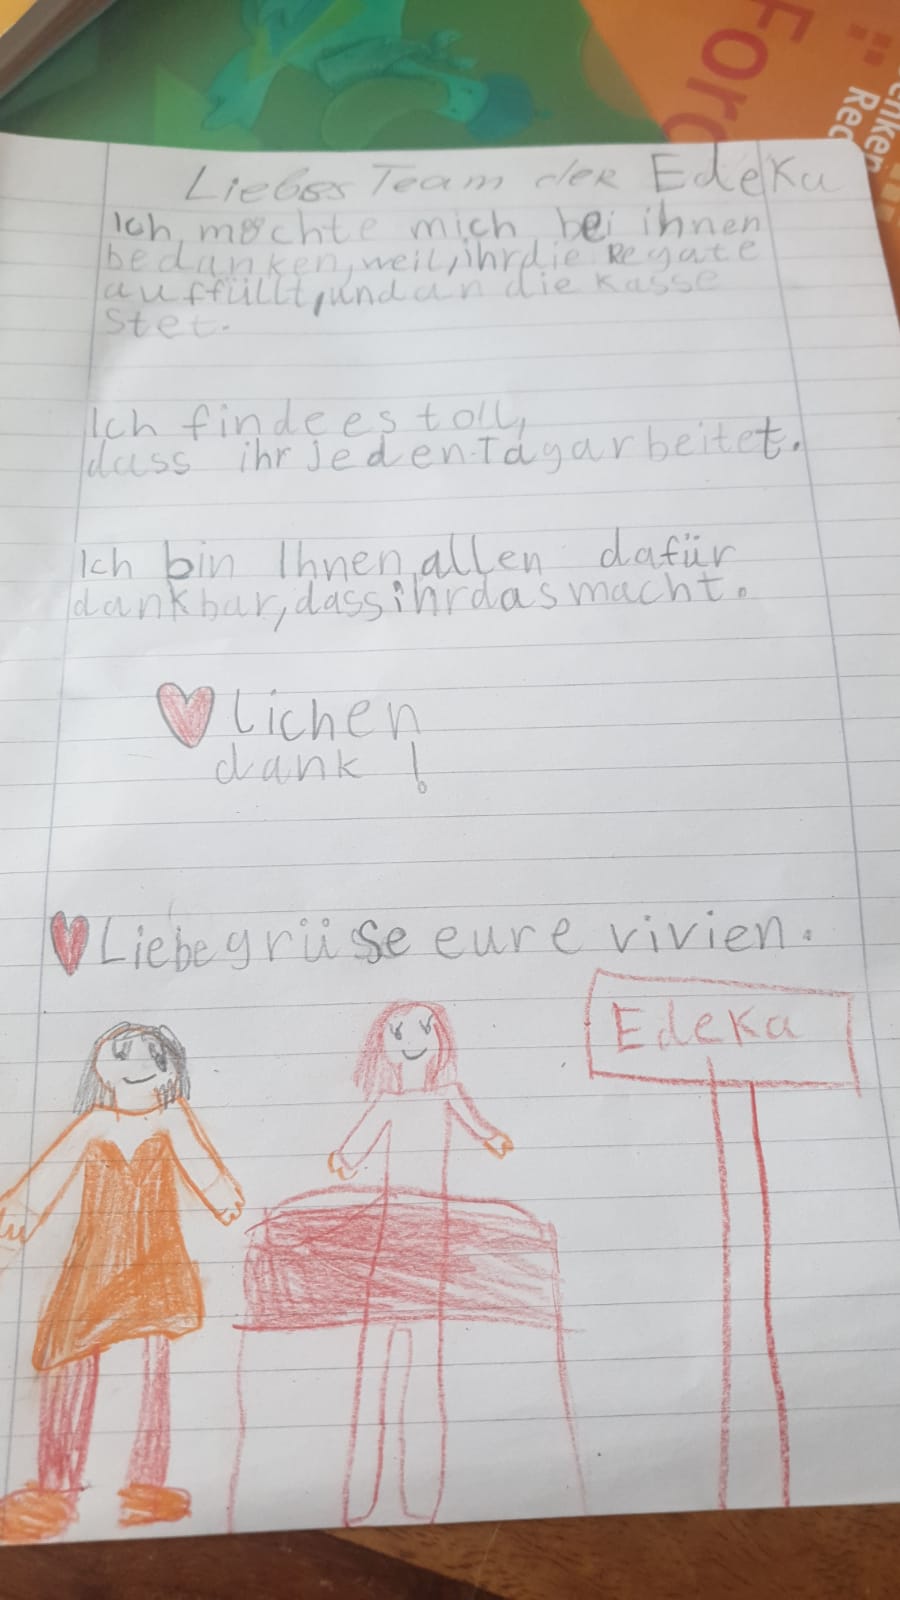 Forc
enker
Rec
Liebes Team der Edeka
Ich möchte mich bei ihnen
bedanken, weil, ihr die Regale
auffüllt, und an die Kasse
stet.
Ich finde es toll,
dass ihr jeden Tag arbeitet.
Ich bin Ihnen allen dafür
dankbar, dass ihr das macht.
❤lichen
dank !
❤Liebe grüse eure vivien.
Edeka